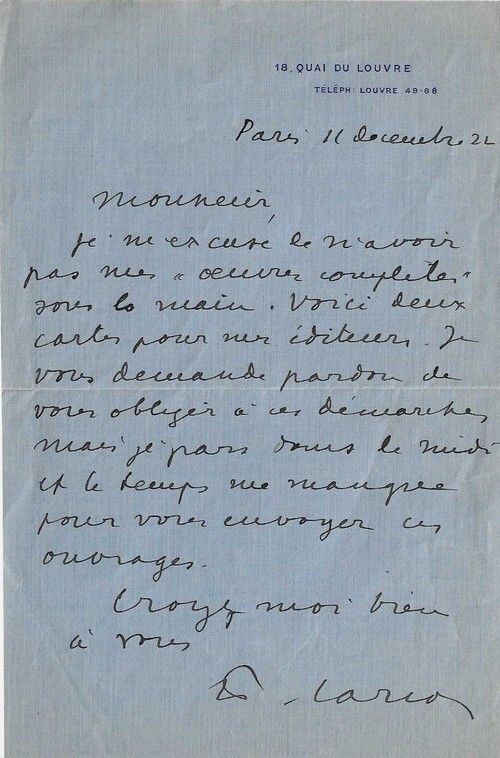 18, QUAI DU LOUVRE
TÉLÉPH: LOUVRE 49-88
Paris 11 decembre 22
Monsieur,
je m'excuse de n'avoir
pas mes "œuvres complètes"
sous la main. Voici deux
cartes pour mes éditeurs. Je
vous demande pardon de
vous obliger à ces démarches
mais je pars dans le midi
et le temps me manque
pour vous envoyer ces
ouvrages.
Croyez moi bien
à vous